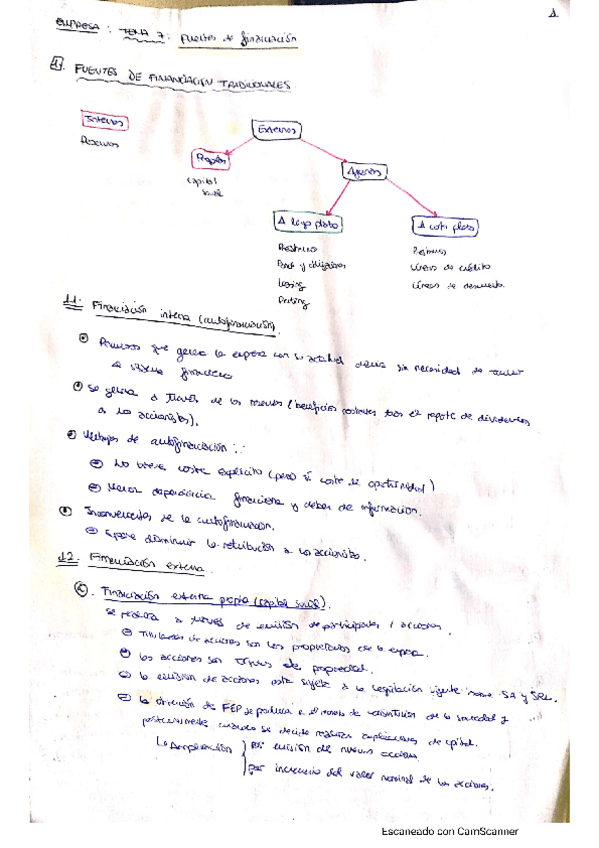 1
EMPRESA: TEMA 7: Fuentes de financiación
1. FUENTES DE FINANCIACIÓN TRADICIONALES
Internos
Reservas
Externos
Propios
capital
social
Ajenos
A largo plazo
Préstamos
Bonos y obligaciones
Leasing
Renting
A corto plazo
Préstamos
Líneas de crédito
Líneas de descuento
1.1. Financiación interna (autofinanciación).
Recursos que genera la empresa con su actividad diaria sin necesidad de acudir
a sistema financiero
Se genera a través de las reservas (beneficios tras el reparto de dividendos
a los accionistas).
Ventajas de autofinanciación:
No tiene coste explícito (pero sí coste de oportunidad)
Menor dependencia financiera y deber de información.
Inconvenientes de la autofinanciación.
Supone disminuir la retribución a los accionistas.
1.2. Financiación externa.
Financiación externa propia (capital social).
Se realiza a través de emisión de participaciones / acciones.
Titulares de acciones son los propietarios de la empresa.
Las acciones son títulos de propiedad.
La emisión de acciones está sujeta a la legislación vigente sobre SA y SRL.
La obtención de FEP se produce en el momento de constitución de la sociedad y
posteriormente cuando se decide realizar ampliaciones de capital.
Ampliación
por emisión de nuevas acciones
por incremento del valor nominal de las acciones.
Escaneado con CamScanner